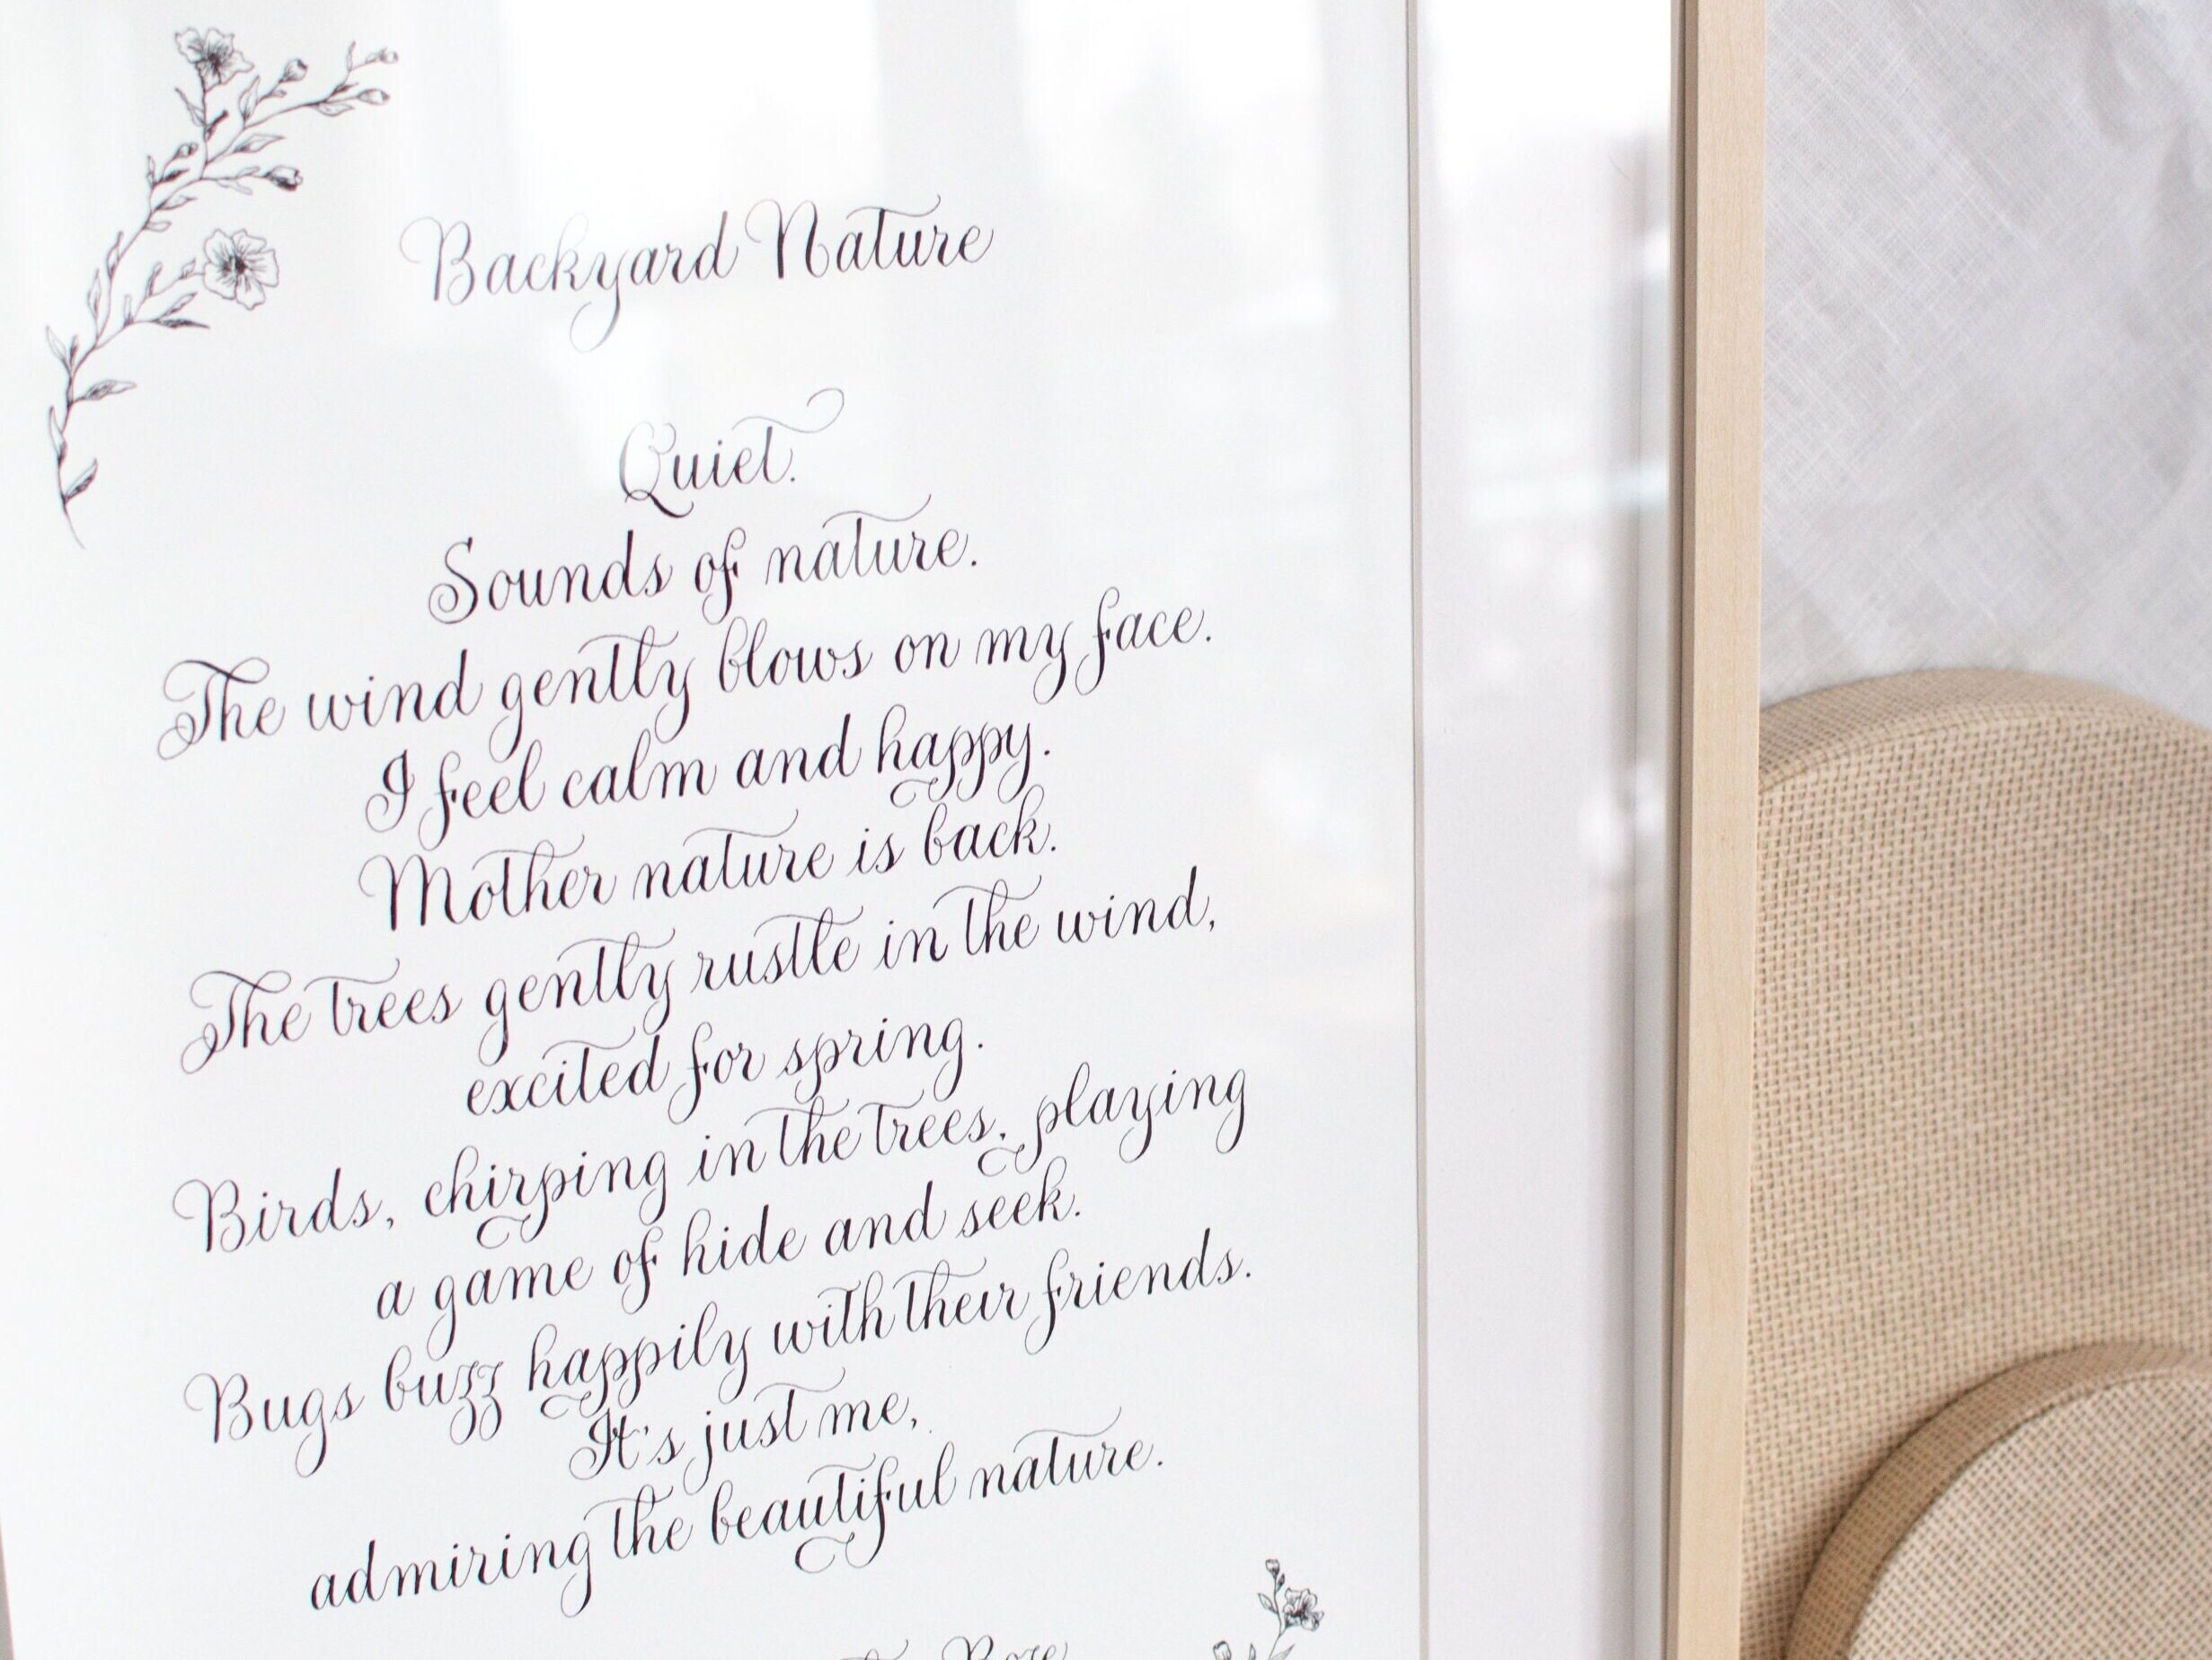 Backyard Nature
Quiet.
Sounds of nature.
The wind gently blows on my face.
I feel calm and happy.
Mother nature is back.
The trees gently rustle in the wind,
excited for spring.
Birds, chirping in the trees, playing
a game of hide and seek.
Bugs buzz happily with their friends.
It's just me,
admiring the beautiful nature.
Rose